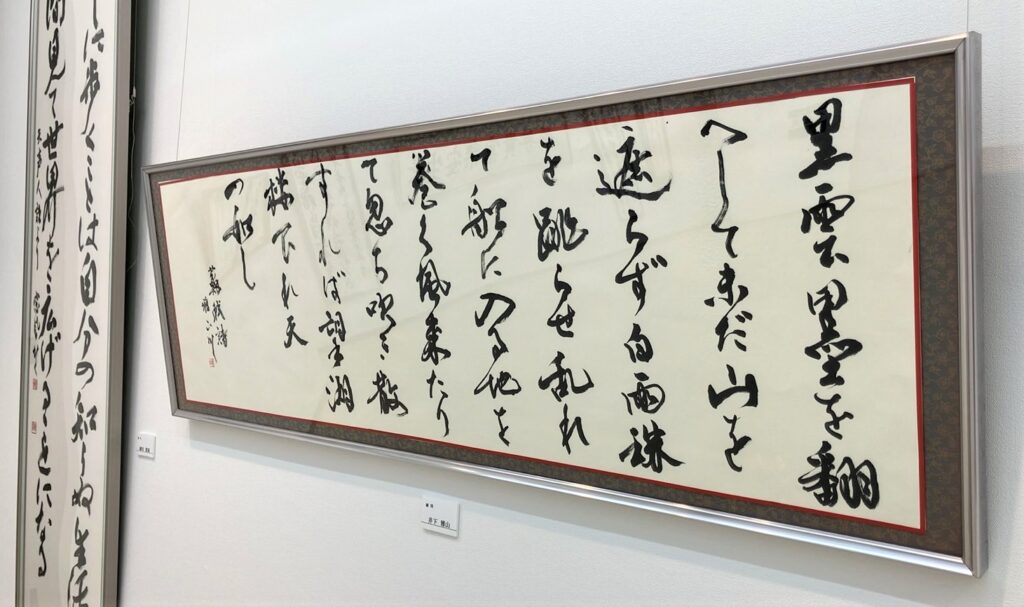 黒雲墨を翻
へして未だ山を
遮らず白雨珠
を跳らせ乱れ
て船に入る地を
巻く風来たり
て忽ち吹き散
ずれば望湖
楼下水天
の如し
蘇軾詩
井下
に歩くことは自分の知らぬ生活
間見て世界を広げることになる